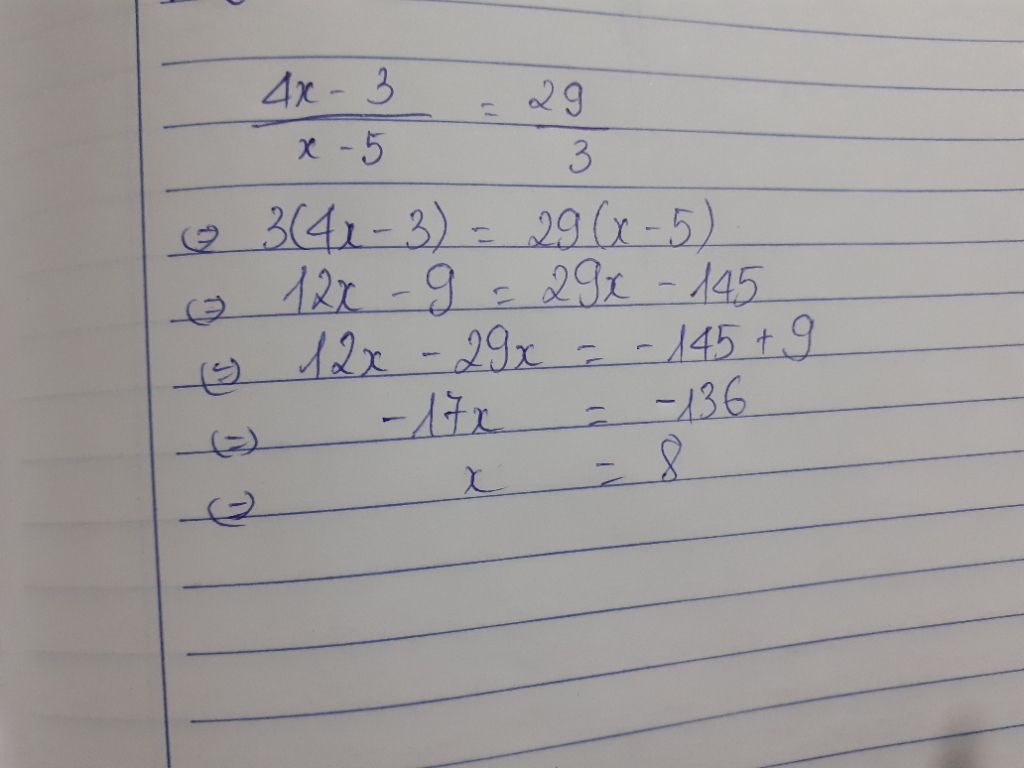 4x - 3 = 29
x - 5 3
(=) 3(4x - 3) = 29(x - 5)
(=) 12x - 9 = 29x - 145
(=) 12x - 29x = -145 + 9
(=) -17x = -136
(=) x = 8